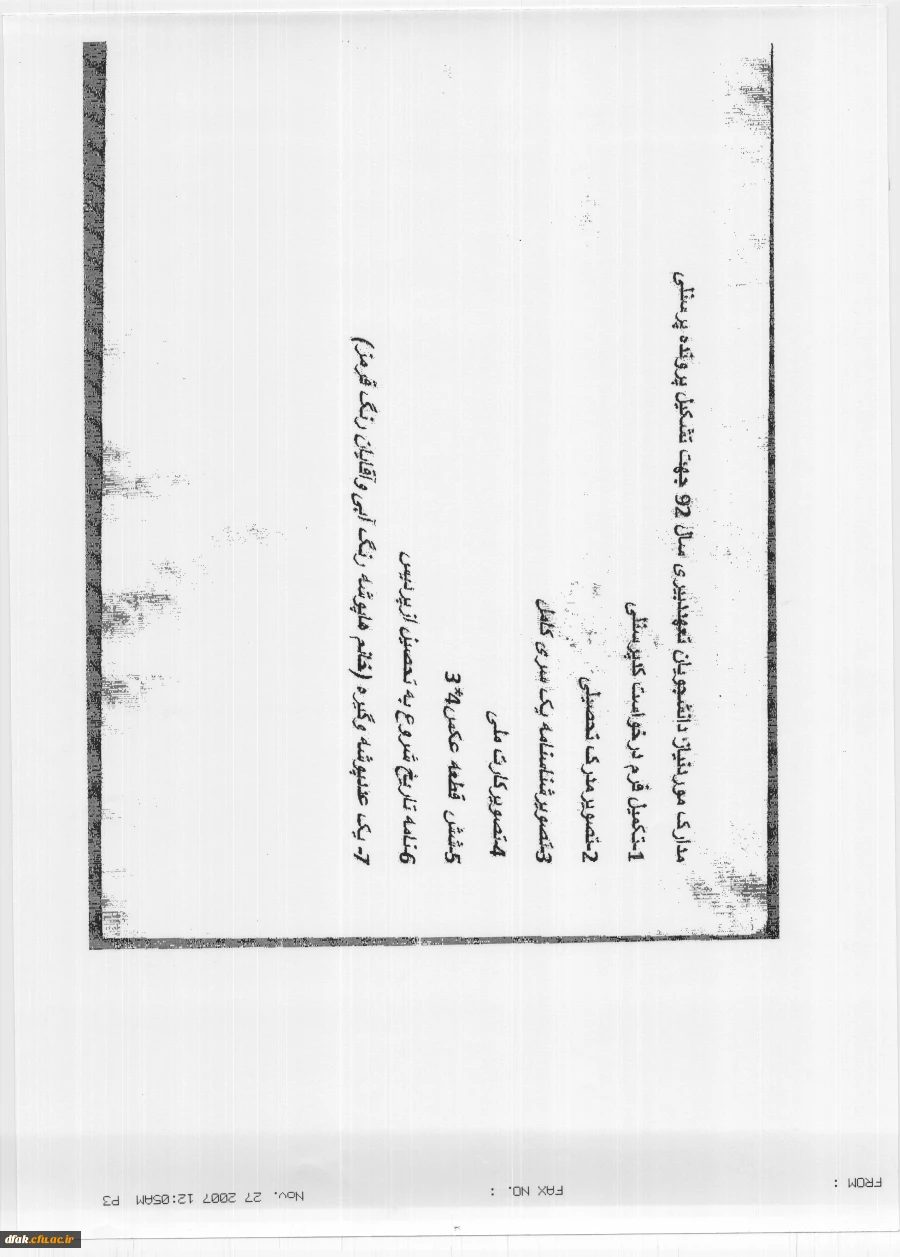 مدارک موردنیاز دانشجویان تعهددبیری سال 92 جهت تشکیل پرونده پرسنلی
1-تکمیل فرم درخواست کدپرسنلی
2-تصویر مدرک تحصیلی
3-تصویرشناسنامه یک سری کامل
4-تصویرکارت ملی
5-شش قطعه عکس4*3
6-نامه تاریخ شروع به تحصیل ازپردیس
7- یک عددپوشه وگیره (خانم هاپوشه رنگ آبی وآقایان رنگ قرمز)
FROM : FAX NO. : Nov. 27 2007 12:05AM P3
dfak.cfu.ac.ir